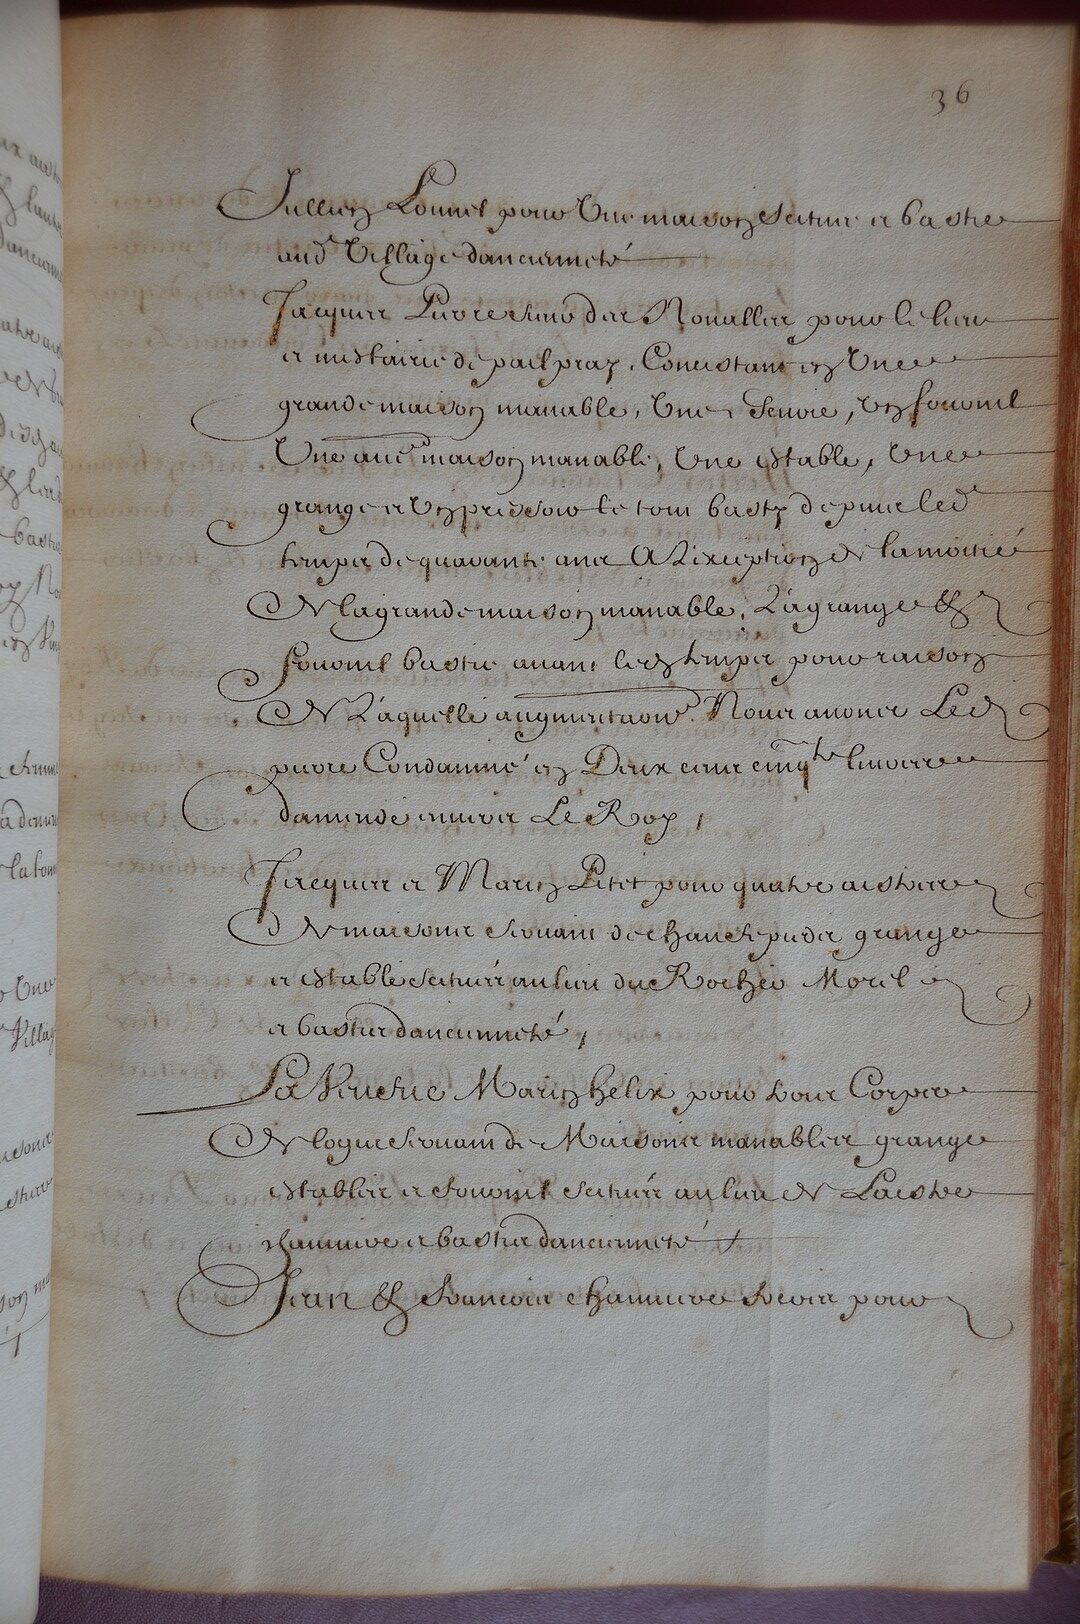 36
Jullien Lounet pour Une maison scituée et bastie
aud.t Village danciennete
Jacques Pierre sieur des Nouallier pour le lieu
et mestairie de pail praz, Concistant en Une
grande maison manable, Une Seuvie, un fournil
Une autre maison manable, Une estable, Une
grange et Un pressoir le tout basty depuis led.
temps de quarante ans A L'exception de la moitié
de la grande maison manable, La grange &
fournil bastie avant led temps pour raison
de Laquelle augmentaon Nous avons Led
pierre Condamné en Deux cens cinq.te livres
damende envers Le Roy,
Jacques et Marin Petit pour quatre aistres
de maisons servant de chauffepieds grange
et estable scituées au lieu du Rocher Morel
et basties danciennete,
La Veufve Marin helix pour deux Corps
de logis servant de Maisons manables grange
estables et fournil scituées au lieu de Laistre
chauvire et basties danciennete
Jean & francois chauvire freres pour